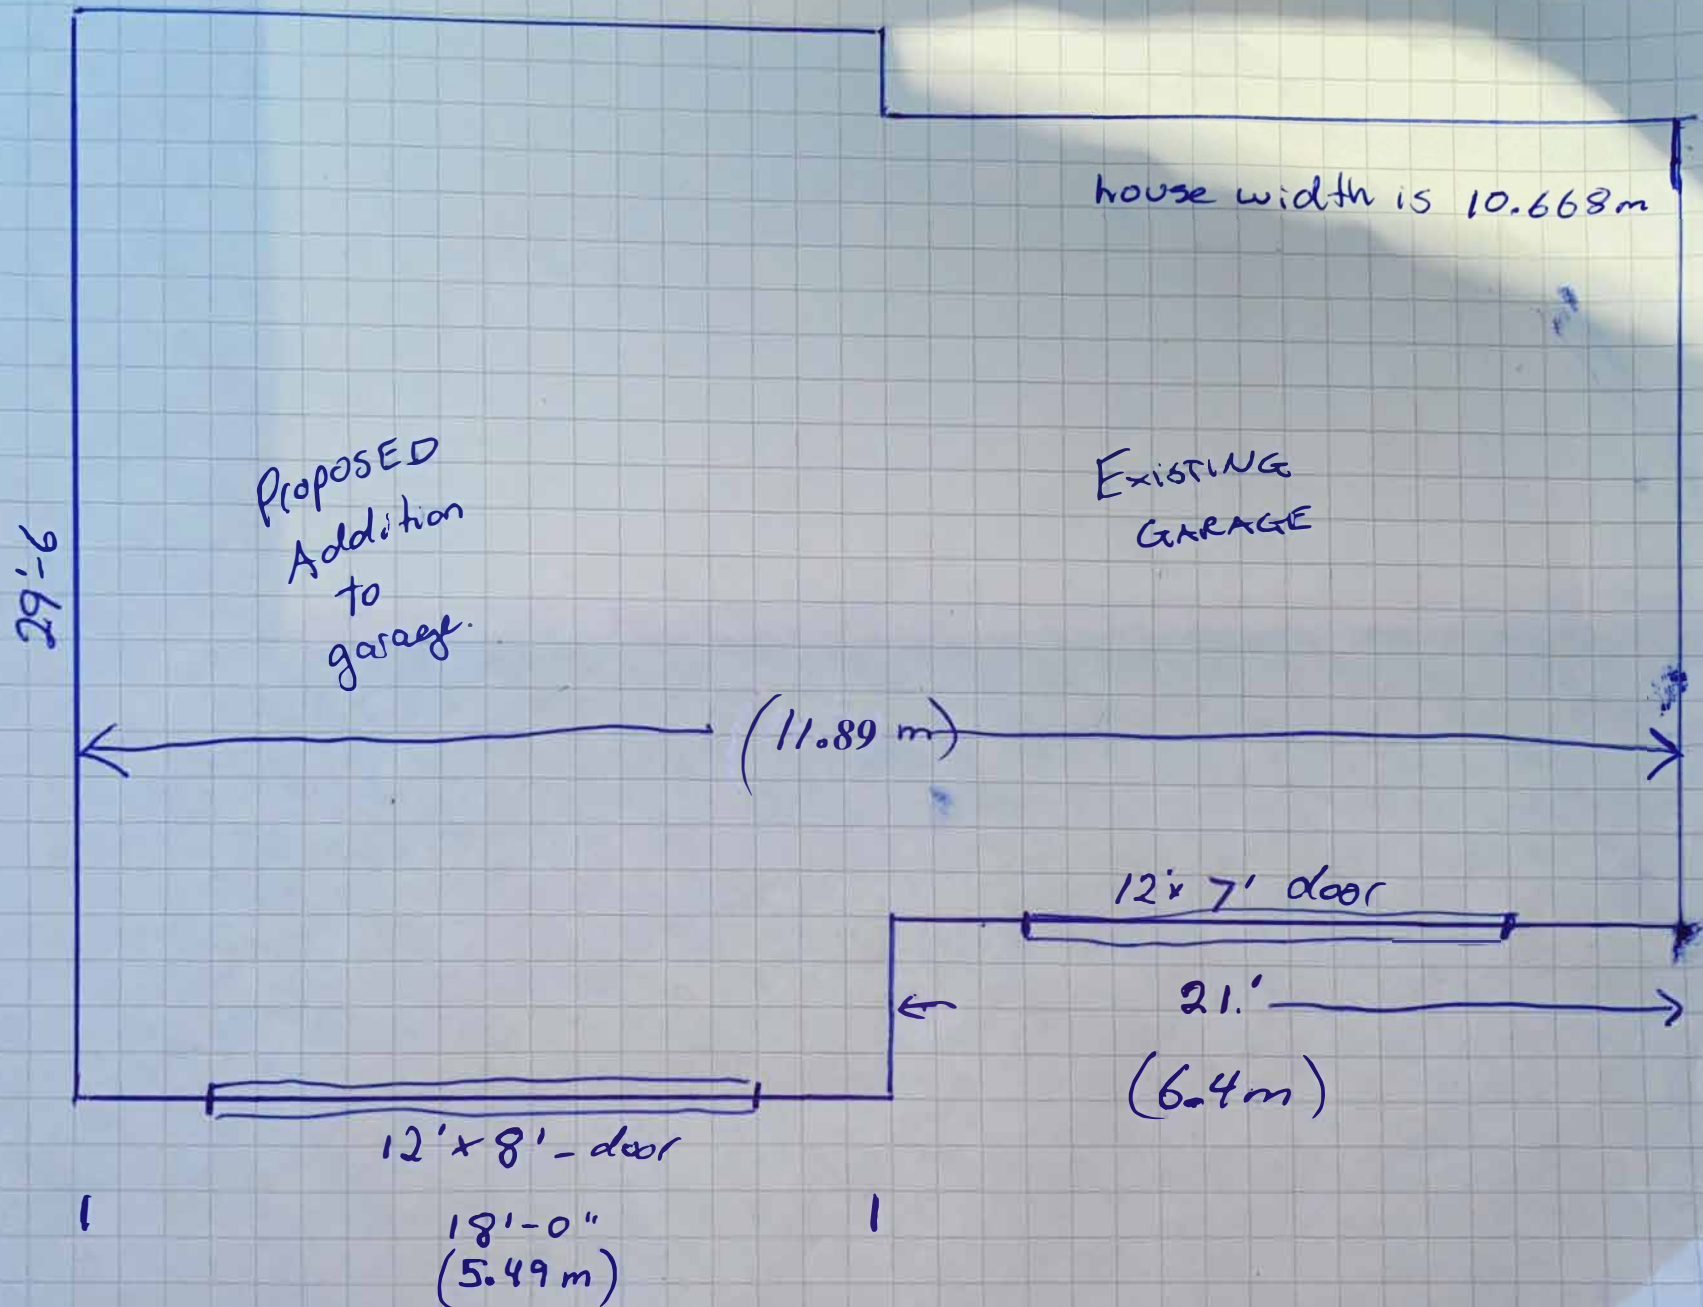 house width is 10.668m
PROPOSED
Addition
to
garage.
EXISTING
GARAGE
29'-6
(11.89 m)
12'x 7' door
21.'
(6.4m)
12'x 8'- door
18'-0"
(5.49m)